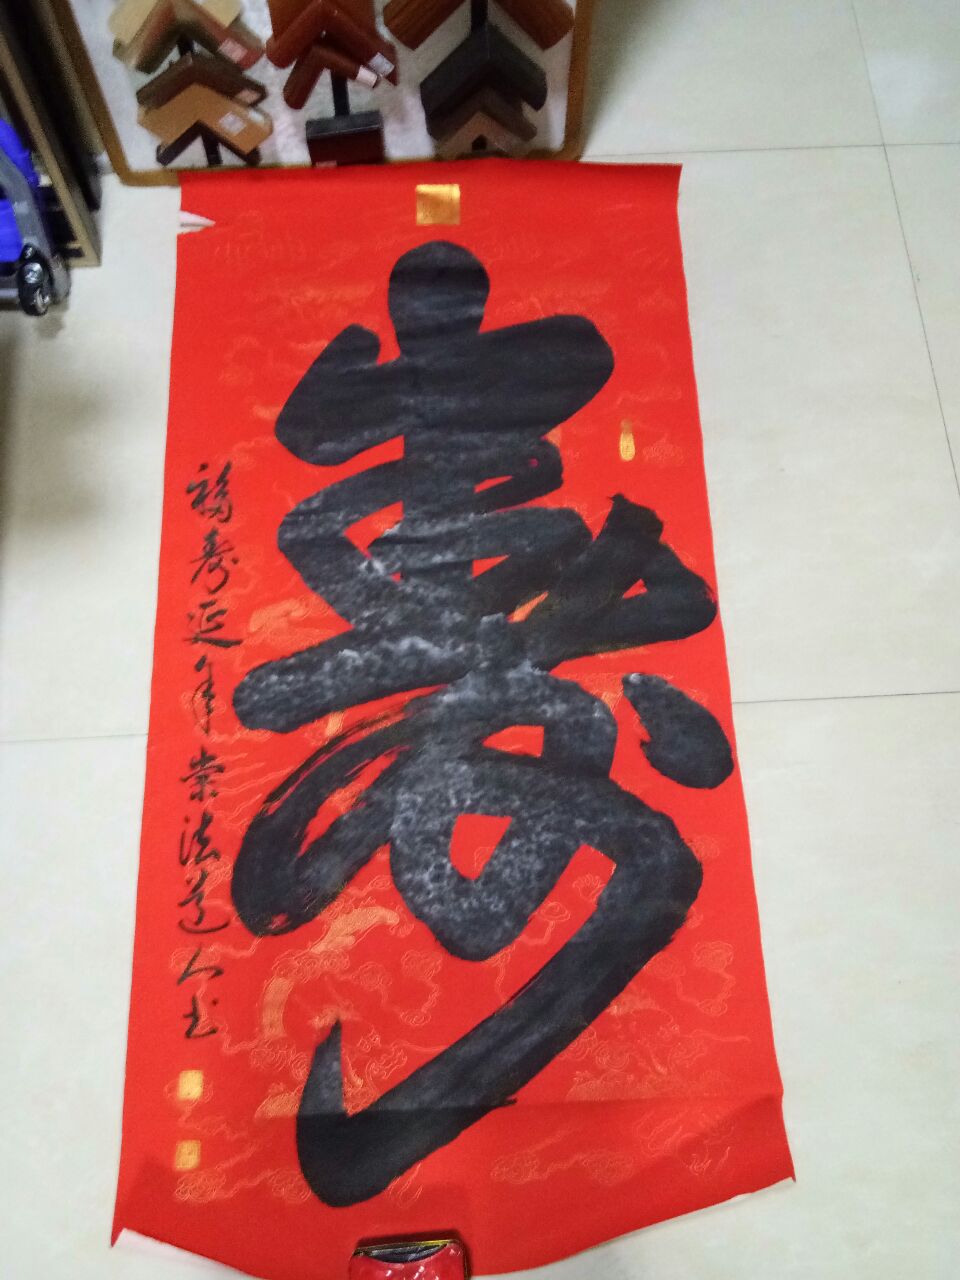 壽
福寿延年崇法道人书